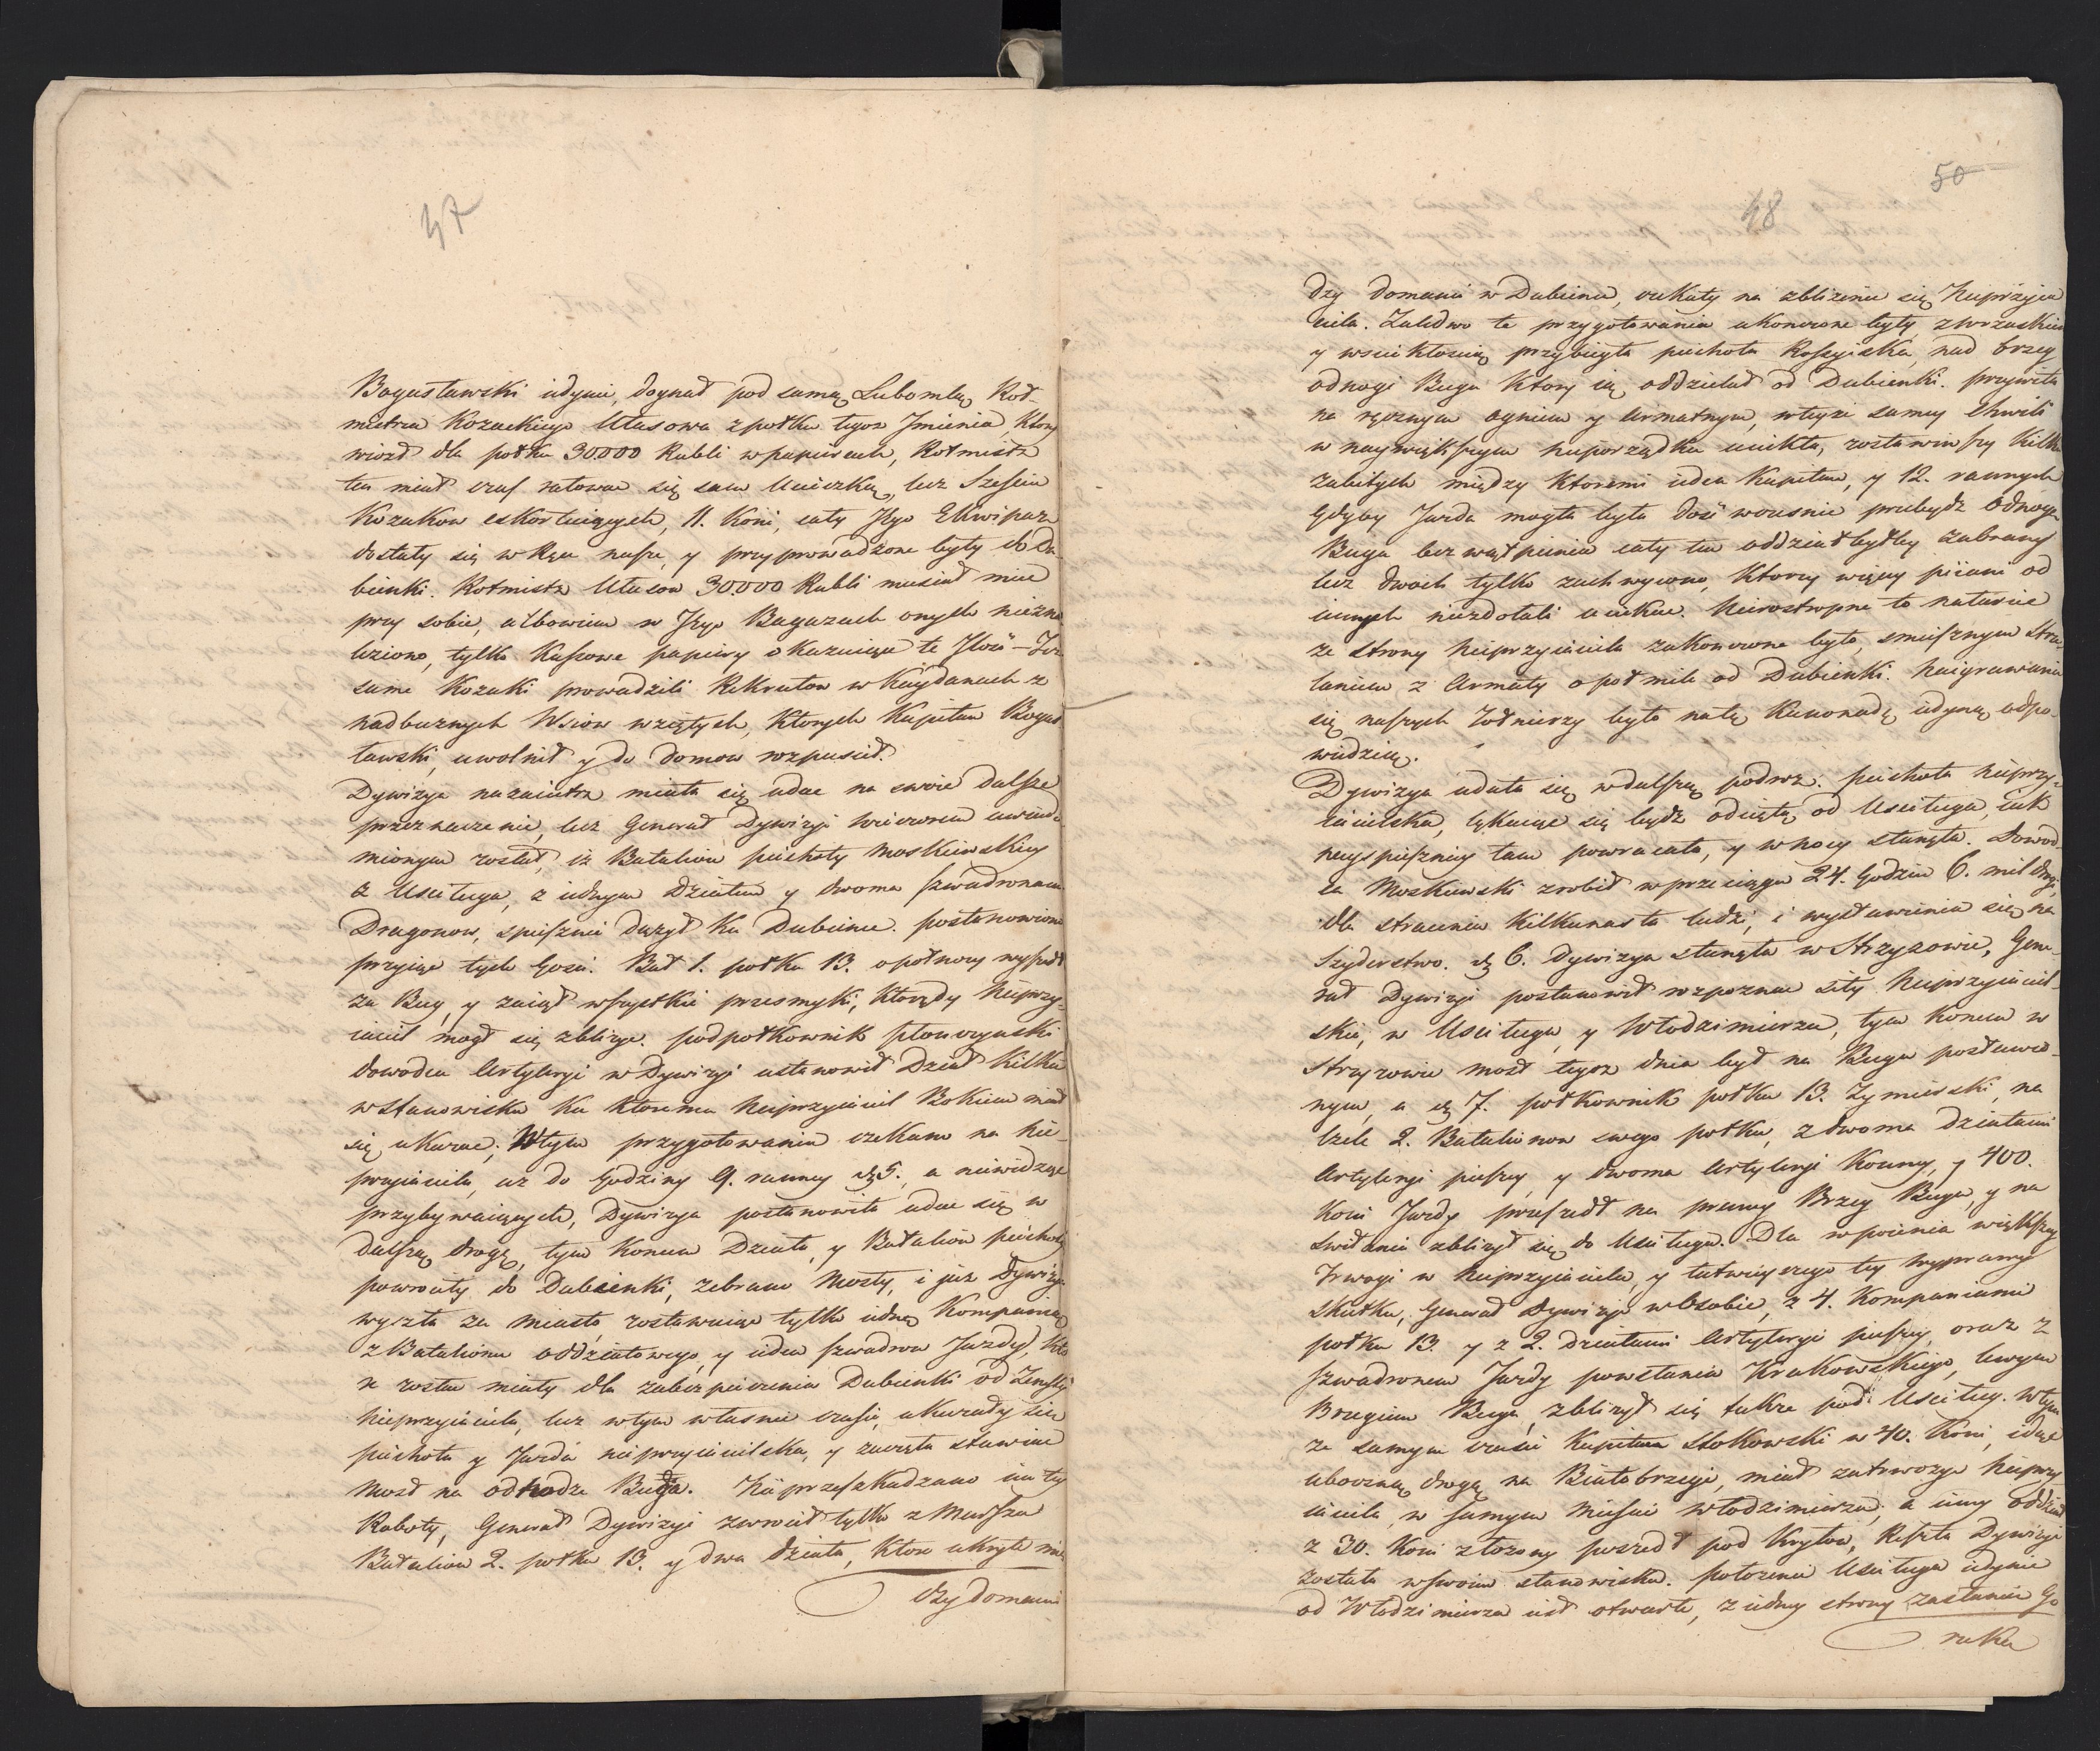 47
Bogusławski iedynie, dognał pod samą Lubomlą Rot-
mistrza Kozackiego Utasowa z połku tegoż Jmienia Ktory
wiozł dla połku 30.000 Rubli w papierach, Rotmistrz
ten miał czas ratować się sam Ucieczką, lecz Sześciu
Kozakow eskortuiących, 11. Koni, cały Jego Ekwipaz
dostały się w Ręce nasze, y przyprowadzone były do Du
bienki. Rotmistrz Utasow 30.000 Rubli musiał mieć
przy sobie, albowiem w Jego Bagazach onych niezna
leziono, tylko Kassowe papiery okazuiące te Jlość – Jez
same Kozaki prowadzili Rekrutow w Kaydanach z
nadbużnych Wsiow wziętych, Ktorych Kapitan Bogus
ławski, uwolnił y do domow rozpuscił.
Dywizya nazaiutrz miała się udać na swoie dalsze
przeznaczenie, lecz Generał Dywizyi wieczorem uwiado
mionym został, iż Batalion piechoty Moskiewskiey
z Uscituga, z iednym Działem y dwoma szwadronami
Dragonow, spiesznie dążył Ku Dubience. postanowiono
przyiąć tych Gosci. Bat 1. połku 13. o połnocy wyszedł
za Bug, y zaiął wszystkie przesmyki, Którędy Nieprzy-
iaciel mogł się zblizyć. podpołkownik płonczynski
dowodca Artyleryi w Dywizyi ustanowił Dział kilka
w Stanowisku Ku Ktoremu Nieprzyiaciel Bokiem miał
się ukazać; W tym przygotowaniu czekano na Nie-
przyiaciela, az do Godziny 9. ranney d. 5., a niewidząc
przybywaiących, Dywizya postanowiła udać się w
dalszą drogę, tym koncem Działa, y Batalion piechoty
powrociły do Dubienki, zebrano Mosty, i już Dywizya
wyszła za miasto, zostawuiąc tylko iedną Kompanią
z Batalionu oddziałowego, y ieden szwadron Jazdy, kto
re zostać miały dla zabezpieczenia Dubienki od Zemsty
Nieprzyiaciela, lecz w tym własnie czasie, ukazały się
piechota y Jazda nieprzyiacielska, y zaczęła stawiać
Most na odnodze Buga. Nie przeszkadzano im tey
Roboty, Generał Dywizyi zwrocił tylko z Marszu
Batalion 2. połku 13. y dwa działa, ktore ukryte mię
dzy domami
50
48
dzy domami w Dubience, czekały na zblizenie się Nieprzyia
ciela. Zaledwo te przygotowania ukonczone były, z wrzaskiem
y wsciekłoscią przybiegła piechota Rossyiska, nad brzeg
odnogi Bugu ktory ią oddzielał od Dubienki. przywita
na ręcznym ogniem y Armatnym, w teyże samey Chwili
w naywiększym nieporządku uciekła, zostawiwszy kilku
zabitych między ktoremi ieden Kapitan, y 12. rannych
Gdyby Jazda mogła była dość wczesnie przebydź odnogę
Bugu bez wątpienia cały ten oddział byłby zabrany
lecz dwoch tylko zachwycono, Ktorzy więcey piiani od
innych niezdołali uciekać. Nieroztropne to natarcie
ze strony Nieprzyiaciela zakonczone było, smiesznym strze-
laniem z Armaty o poł mile od Dubienki. Naigrawanie
się naszych Żołnierzy było na tę Kanonadę iedyną odpo-
wiedzią.
Dywizya udała się w dalszą podroż. piechota Nieprzy-
iacielska, lękaiąc się bydź odciętą od Uscituga, iak
nayspieszniey tam powracała, y w nocy stanęła. Dowod-
ca Moskiewski zrobił w przeciągu 24. Godzin 6. mil drogi,
dla stracenia kilkunastu ludzi, i wystawienia się na
Szyderstwo. d. 6. Dywizya stanęła w Strzyzowie, Gene-
rał Dywizyi postanowił rozpoznać siły Nieprzyiaciel-
skie, w Uscitugu, y Włodzimierzu, tym koncem w
Strzyzowie most tegoż dnia był na Bugu postawio-
nym, a d. 7. połkownik połku 13. Zymirski, na
czele 2. Batalionow swego połku, z dwoma działami
Artyleryi pieszey, y dwoma Artyleryi konney, y 400.
Koni Jazdy przeszedł na prawy Brzeg Bugu, y na
switaniu zblizył się do Uscituga. Dla wpoienia większey
Trwogi w Nieprzyiaciela, y łatwieyszego tey wyprawy
skutku, Generał Dywizyi w Osobie, z 4. Kompaniami
połku 13. y z 2. działami Artyleryi pieszey, oraz z
szwadronem Jazdy powstania Krakowskiego, lewym
Brzegiem Bugu, zblizył się także pod Uscitug. W tym
że samym czasie Kapitan Stokowski w 40. Koni, idąc
uboczną drogą na Białobrzegi, miał zatrwozyć Nieprzy
iaciela, w samym Miescie Włodzimierzu, a inny oddział
z 30. Koni złozony poszedł pod Kryłow, Reszta Dywizyi
została w swoim stanowisku. połozenie Uscituga iedynie
od Włodzimierza iest otwarte, z iedney strony zasłania Go
rzeka